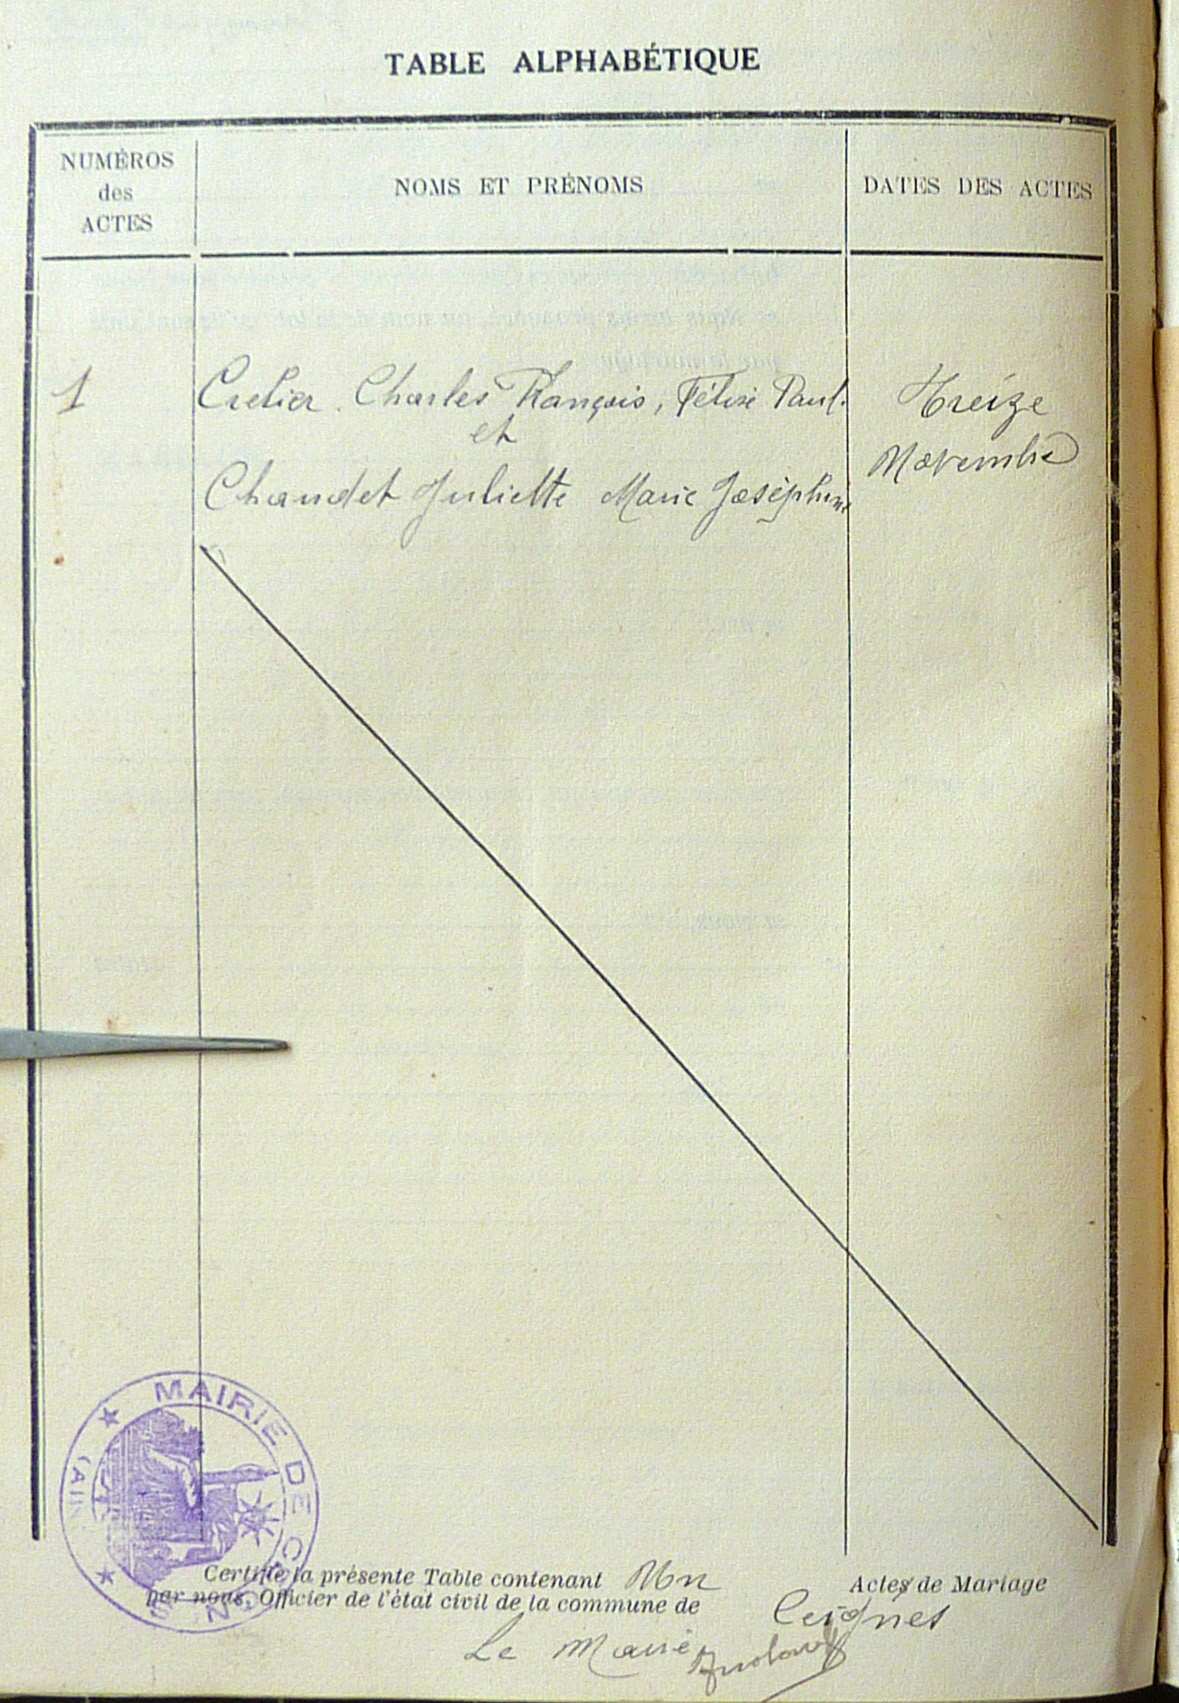 TABLE ALPHABÉTIQUE
NUMÉROS
des
ACTES
NOMS ET PRÉNOMS
DATES DES ACTES
1
Crelier Charles François, Félix Paul.
et
Chaudet Juliette Marie Joséphine
Treize
Novembre
MAIRIE DE CEIGNES
(AIN)
Certifié la présente Table contenant Un Actes de Mariage
par nous, Officier de l'état civil de la commune de Ceignes
Le Maire